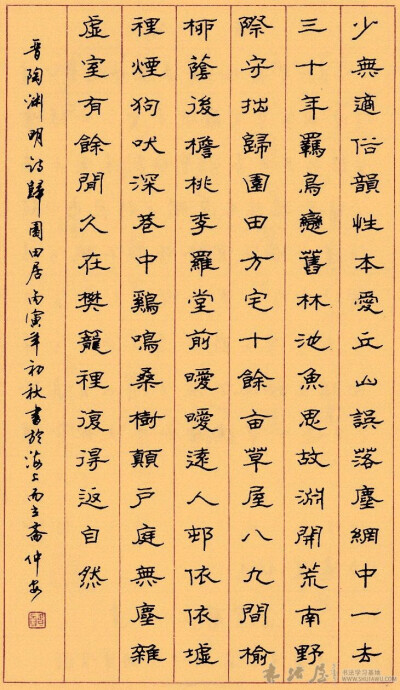 少無適俗韻性本愛丘山誤落塵網中一去
三十年羈鳥戀舊林池魚思故淵開荒南野
際守拙歸園田方宅十餘亩草屋八九間榆
柳蔭後檐桃李羅堂前曖曖遠人邨依依墟
裡煙狗吠深巷中鷄鳴桑樹顛戶庭無塵雜
虛室有餘閒久在樊籠裡復得返自然
晉陶渊明诗歸園田居丙寅年初秋書於海上而立齋仲安
书法屋
书法学习基地
www.shufawu.com